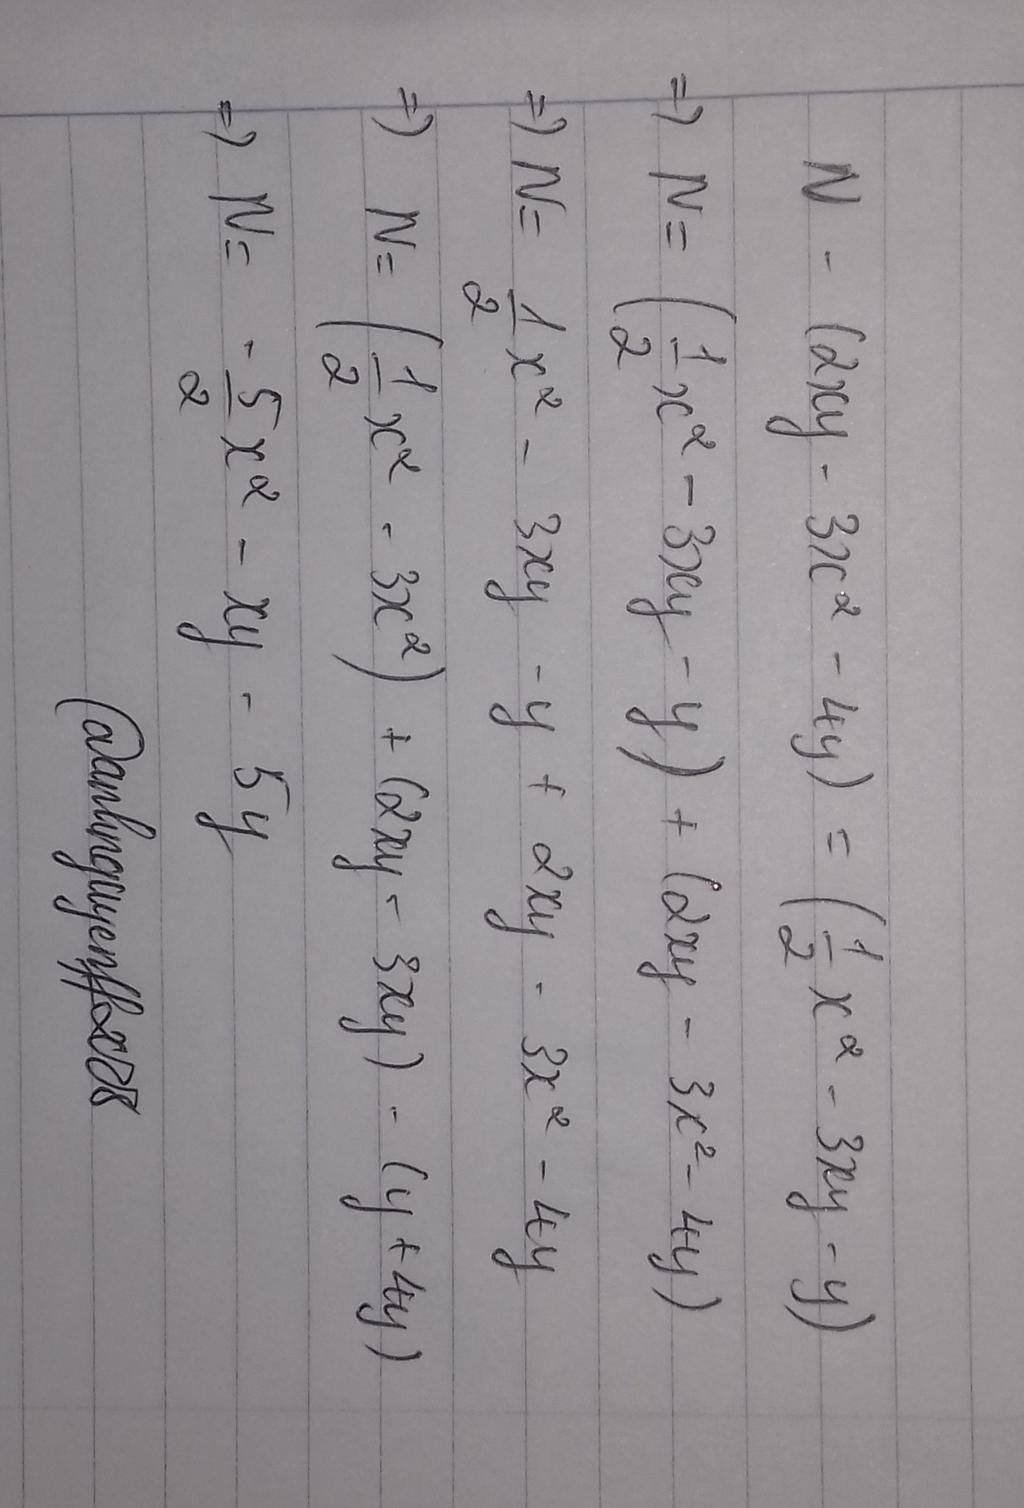 N - (2xy - 3x² - 4y) = (1/2 x² - 3xy - y)
=) N = (1/2 x² - 3xy - y) + (2xy - 3x² - 4y)
=) N = 1/2 x² - 3xy - y + 2xy - 3x² - 4y
=) N = (1/2 x² - 3x²) + (2xy - 3xy) - (y + 4y)
=) N = -5/2 x² - xy - 5y